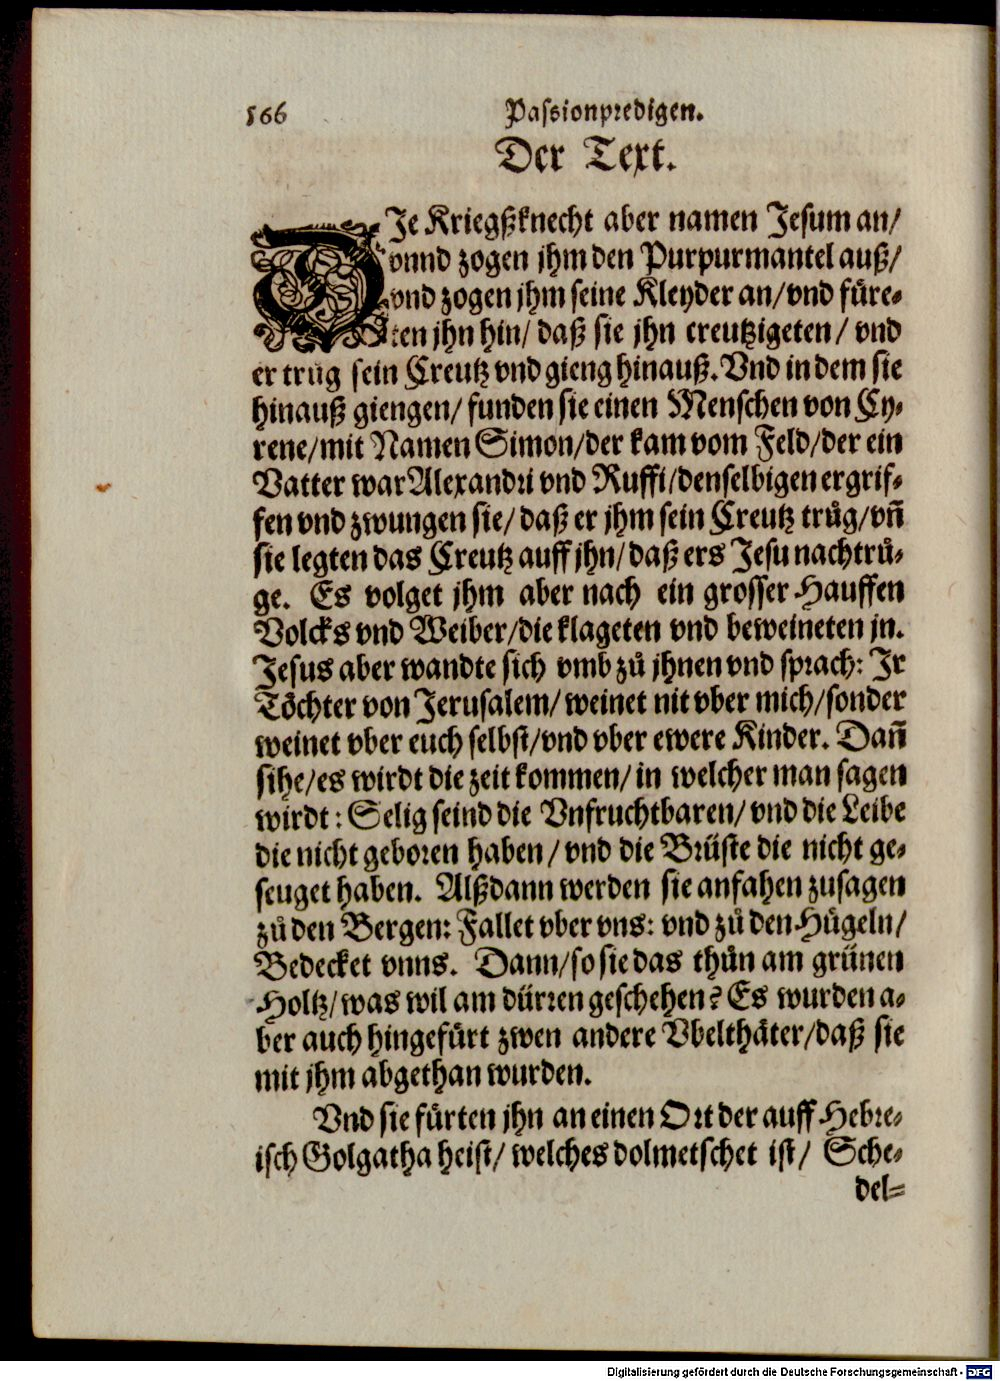 166 Passionpredigen.
Der Text.
DJe Kriegßknecht aber namen Jesum an/
vnnd zogen jhm den Purpurmantel auß/
vnd zogen jhm seine Kleyder an/vnd füre-
ten jhn hin/ daß sie jhn creutzigeten/ vnd
er trůg sein Creutz vnd gieng hinauß. Vnd in dem sie
hinauß giengen/ funden sie einen Menschen von Cy-
rene/mit Namen Simon/der kam vom Feld/der ein
Vatter war Alexandri vnd Ruffi/denselbigen ergrif-
fen vnd zwungen sie/ daß er jhm sein Creutz trůg/vñ
sie legten das Creutz auff jhn/ daß ers Jesu nachtrů-
ge. Es volget jhm aber nach ein grosser Hauffen
Volcks vnd Weiber/die klageten vnd beweineten jn.
Jesus aber wandte sich vmb zů jhnen vnd sprach: Jr
Töchter von Jerusalem/ weinet nit vber mich/sonder
weinet vber euch selbst/vnd vber ewere Kinder. Dañ
sihe/es wirdt die zeit kommen/ in welcher man sagen
wirdt: Selig seind die Vnfruchtbaren/ vnd die Leibe
die nicht geboren haben/ vnd die Brüste die nicht ge-
seuget haben. Alßdann werden sie anfahen zusagen
zů den Bergen: Fallet vber vns: vnd zů den Hügeln/
Bedecket vnns. Dann/so sie das thůn am grünen
Holtz/was wil am dürren geschehen? Es wurden a-
ber auch hingefürt zwen andere Vbelthäter/daß sie
mit jhm abgethan wurden.
Vnd sie fürten jhn an einen Ort der auff Hebre-
isch Golgatha heist/ welches dolmetschet ist/ Sche-
del-
Digitalisierung gefördert durch die Deutsche Forschungsgemeinschaft - DFG